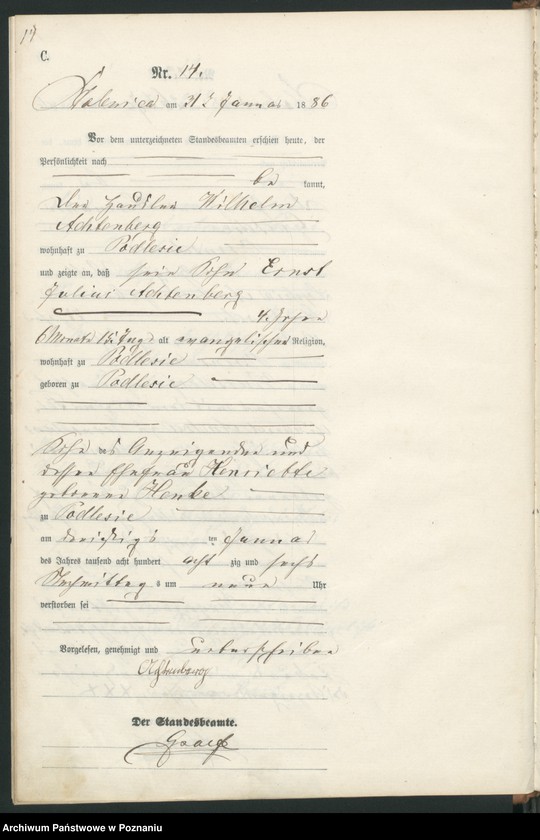 17
C.
Nr. 14.
am 31ten Januar 1886
Vor dem unterzeichneten Standesbeamten erschien heute, der
Persönlichkeit nach
be kannt,
der Händler Wilhelm
Achtenberg
wohnhaft zu Podlesie
und zeigte an, daß sein Sohn Ernst
Julius Achtenberg
4 Jahre
6 Monate 15 Tage alt evangelischer Religion,
wohnhaft zu Podlesie
geboren zu Podlesie
Sohn des Anzeigenden und
dessen Ehefrau Henriette
geborene Henke
zu Podlesie
am dreißigsten Januar
des Jahres tausend acht hundert acht zig und sechs
Nachmittags um neun Uhr
verstorben sei
Vorgelesen, genehmigt und unterschrieben
Achtenberg
Der Standesbeamte.
Archiwum Państwowe w Poznaniu